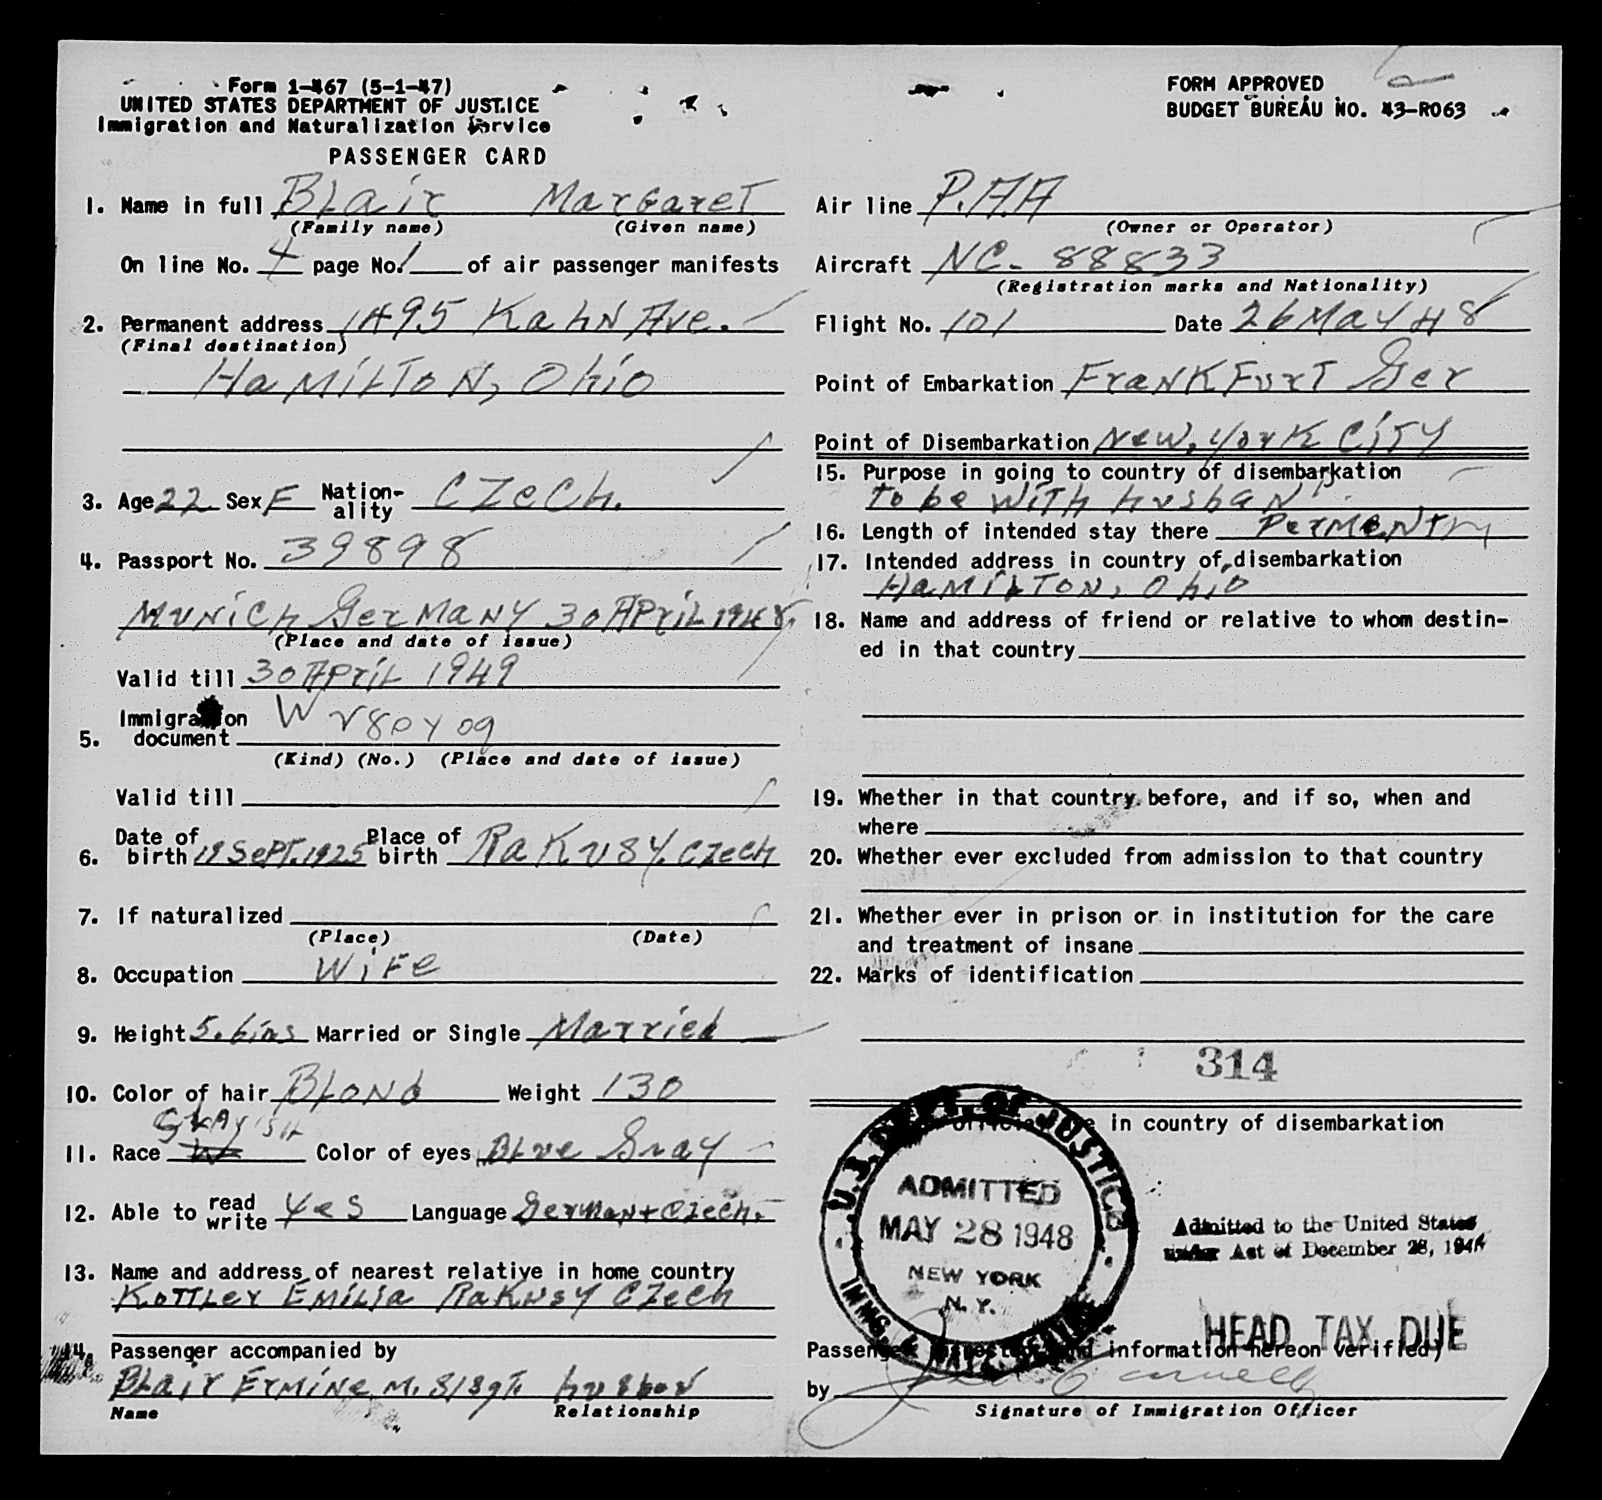 Form 1-467 (5-1-47)
UNITED STATES DEPARTMENT OF JUSTICE
Immigration and Naturalization Service
PASSENGER CARD
FORM APPROVED
BUDGET BUREAU NO. 43-R063
1. Name in full Blair Margaret
(Family name) (Given name)
On line No. 4 page No. 1 of air passenger manifests
2. Permanent address 1495 Kahn Ave.
(Final destination)
Hamilton, Ohio
3. Age 22 Sex F Nation-ality Czech.
4. Passport No. 39898
Munich Germany 30 April 1948.
(Place and date of issue)
Valid till 30 April 1949
5. Immigration document W
(Kind) (No.) (Place and date of issue)
Valid till
6. Date of birth 19 Sept. 1925 Place of birth Rakusy. Czech
7. If naturalized
(Place) (Date)
8. Occupation Wife
9. Height 5. 6ins Married or Single Married
10. Color of hair Blond Weight 130
Slavish
11. Race W Color of eyes Blue Gray
12. Able to read write Yes Language German + Czech.
13. Name and address of nearest relative in home country
Kottley Emilia Rakusy Czech
14. Passenger accompanied by
Blair Ermine M. S/Sgt.
Name Relationship
Air line P.A.A
(Owner or Operator)
Aircraft NC- 88833
(Registration marks and Nationality)
Flight No. 101 Date 26 May 48
Point of Embarkation Frankfurt Ger
Point of Disembarkation New. York City
15. Purpose in going to country of disembarkation
to be with
16. Length of intended stay there Permentry
17. Intended address in country of disembarkation
Hamilton, Ohio
18. Name and address of friend or relative to whom destin-
ed in that country
19. Whether in that country before, and if so, when and
where
20. Whether ever excluded from admission to that country
21. Whether ever in prison or in institution for the care
and treatment of insane
22. Marks of identification
314
in country of disembarkation
U.S. DEPT. OF JUSTICE
ADMITTED
MAY 28 1948
NEW YORK
N. Y.
IMMIG. &
Admitted to the United States
under Act of December 28, 194
HEAD TAX DUE
Passenger inspected and information hereon verified)
by
Signature of Immigration Officer